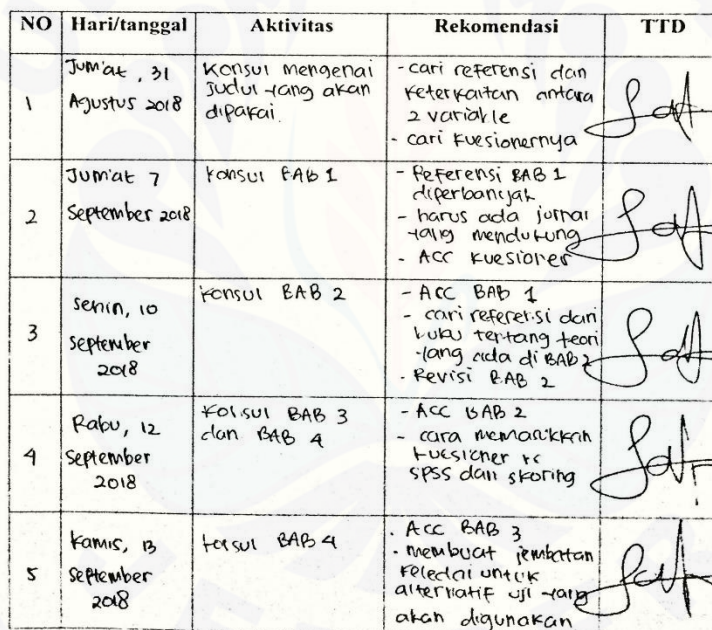 NO Hari/tanggal Aktivitas Rekomendasi TTD
1
Jum'at, 31
Agustus 2018
Konsul mengenai
Judul yang akan
dipakai.
- cari referensi dan
keterkaitan antara
2 variable
- cari kuesionernya
2
Jum'at 7
September 2018
konsul BAB 1
- Referensi BAB 1
diperbanyak
- harus ada jurnal
yang mendukung
- ACC kuesioner
3
senin, 10
September
2018
konsul BAB 2
- Acc BAB 1
- cari referensi dari
buku tentang teori
yang ada di BAB 2
- Revisi BAB 2
4
Rabu, 12
September
2018
Konsul BAB 3
dan BAB 4
- Acc BAB 2
- cara memasukkan
kuesioner ke
spss dan skoring
5
Kamis, 13
September
2018
konsul BAB 4
- Acc BAB 3
- membuat jembatan
keledai untuk
alternatif uji yang
akan digunakan